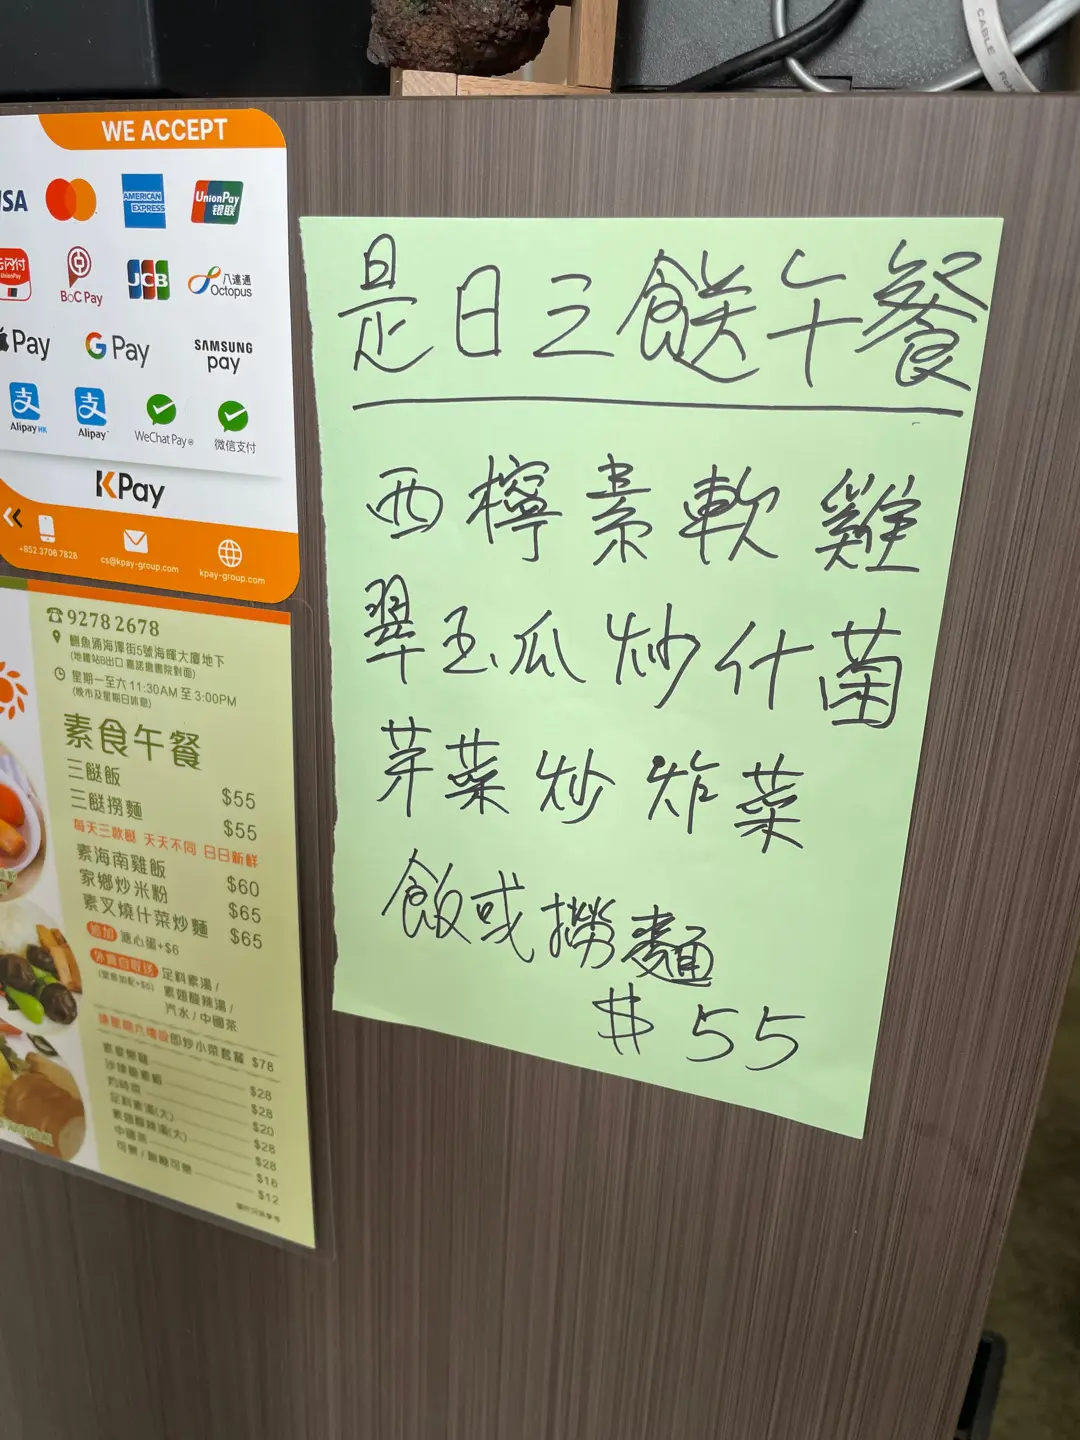 WE ACCEPT
VISA
AMERICAN EXPRESS
UnionPay 银联
云闪付
UnionPay
BoC Pay
JCB
八達通 Octopus
Pay
G Pay
SAMSUNG pay
支 AlipayHK
支 Alipay
WeChat Pay
微信支付
KPay
+852 3706 7828
cs@kpay-group.com
kpay-group.com
9278 2678
鰂魚涌海澤街5號海暉大廈地下
星期一至六 11:30AM 至 3:00PM
(晚市及星期日休息)
素食午餐
三餸飯 $55
三餸撈麵 $55
每天三款餸 天天不同 日日新鮮
素海南雞飯 $60
家鄉炒米粉 $65
素叉燒什菜炒麵 $65
追加 溏心蛋+$6
外賣自取送 足料素湯 /
素翅酸辣湯 /
汽水 / 中國茶
即炒小菜套餐 $78
$28
$28
$20
足料素湯(大) $28
素翅酸辣湯(大) $28
中國茶 $16
$12
是日三餸午餐
西檸素軟雞
翠玉瓜炒什菌
芽菜炒炸菜
飯或撈麵
$55
CABLE